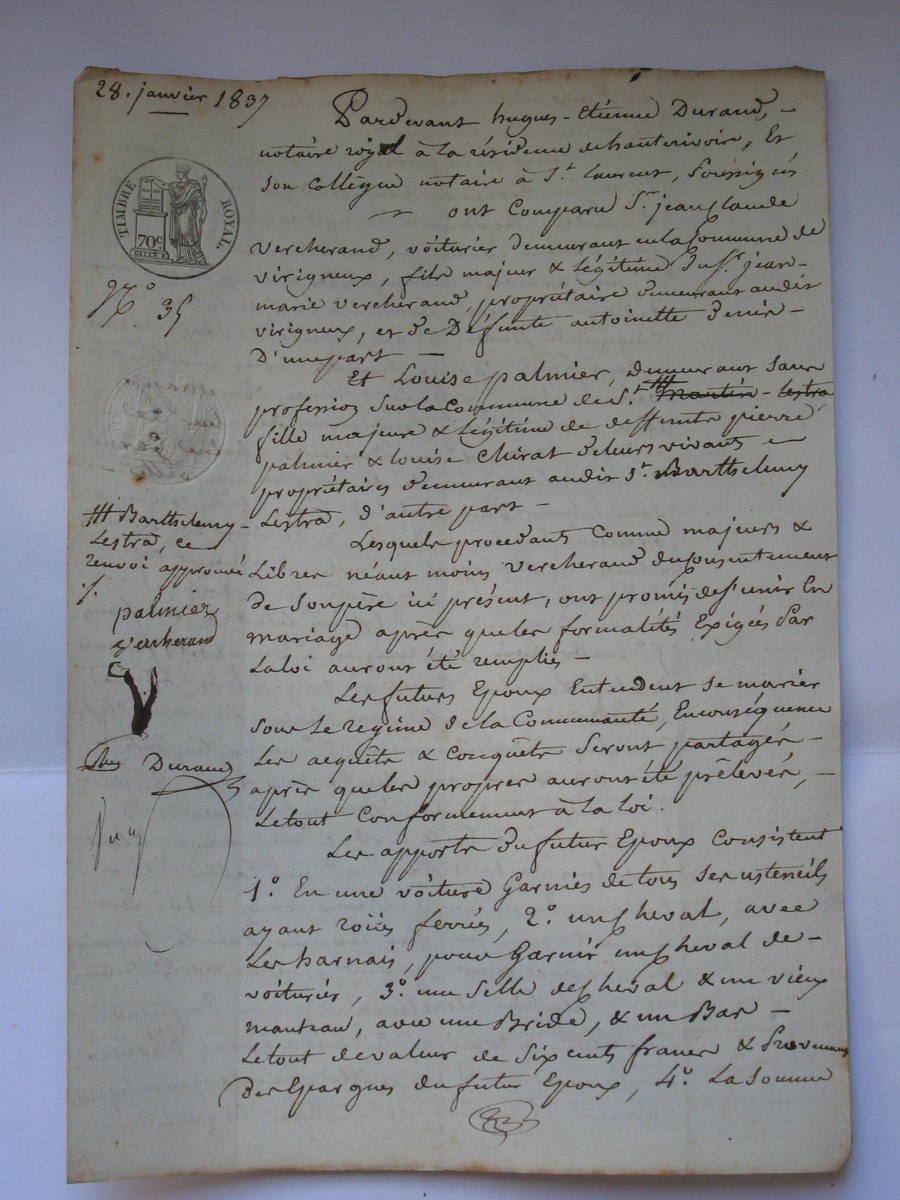 28. janvier 1837
TIMBRE ROYAL.
70c
N° 35
Pardevant hugues-Etienne Durand,
notaire royal à la résidence de hauterivoire, Et
son Collègue notaire à St. laurent, Soussignés
ont Comparu Sr. jean Claude
vercherand, voiturier demeurant en la Commune de
virigneux, fils majeur & légitime du Sr. jean-
marie vercherand, propriétaire demeurant audit
virigneux, et de Défunte antoinette
D'une part —
Et Louise palmier, demeurant sans
profession sur la Commune de St. martin - lestra
fille majeure & légitime de deffunts pierre
palmier & louise Chirat de leurs vivants
propriétaires demeurant audit St. Barthelemy
Lestra, d'autre part —
Lesquels procedants Comme majeurs &
Libres néant moins vercherand du Consentement
de Son père ici présent, ont promis de s'unir En
mariage après que les formalités Exigées Par
La loi auront été remplies —
Les futurs Epoux Entendent se marier
sous Le regime de la Communauté, En conséquence
Les acquêts & Conquêts Seront partagés —
après que les propres auront été prélevés, —
Le tout Conformement à la loi.
Les apports du futur Epoux Consistent
1°. En une voiture Garnies de tous Ses usteneils
ayant roües ferrées, 2°. un Cheval, avec
Les harnais, pour Garnir un Cheval de —
voiturier, 3°. une Selle de Cheval & un vieux
manteau, avec une Bride, & un Bas —
Le tout de valeur de Six cents francs & Provenant
Des Epargnes du futur Epoux, 4°. La Somme
Barthelemy
Lestra, ce
renvoi approuvé
palmier
vercherand
Durand